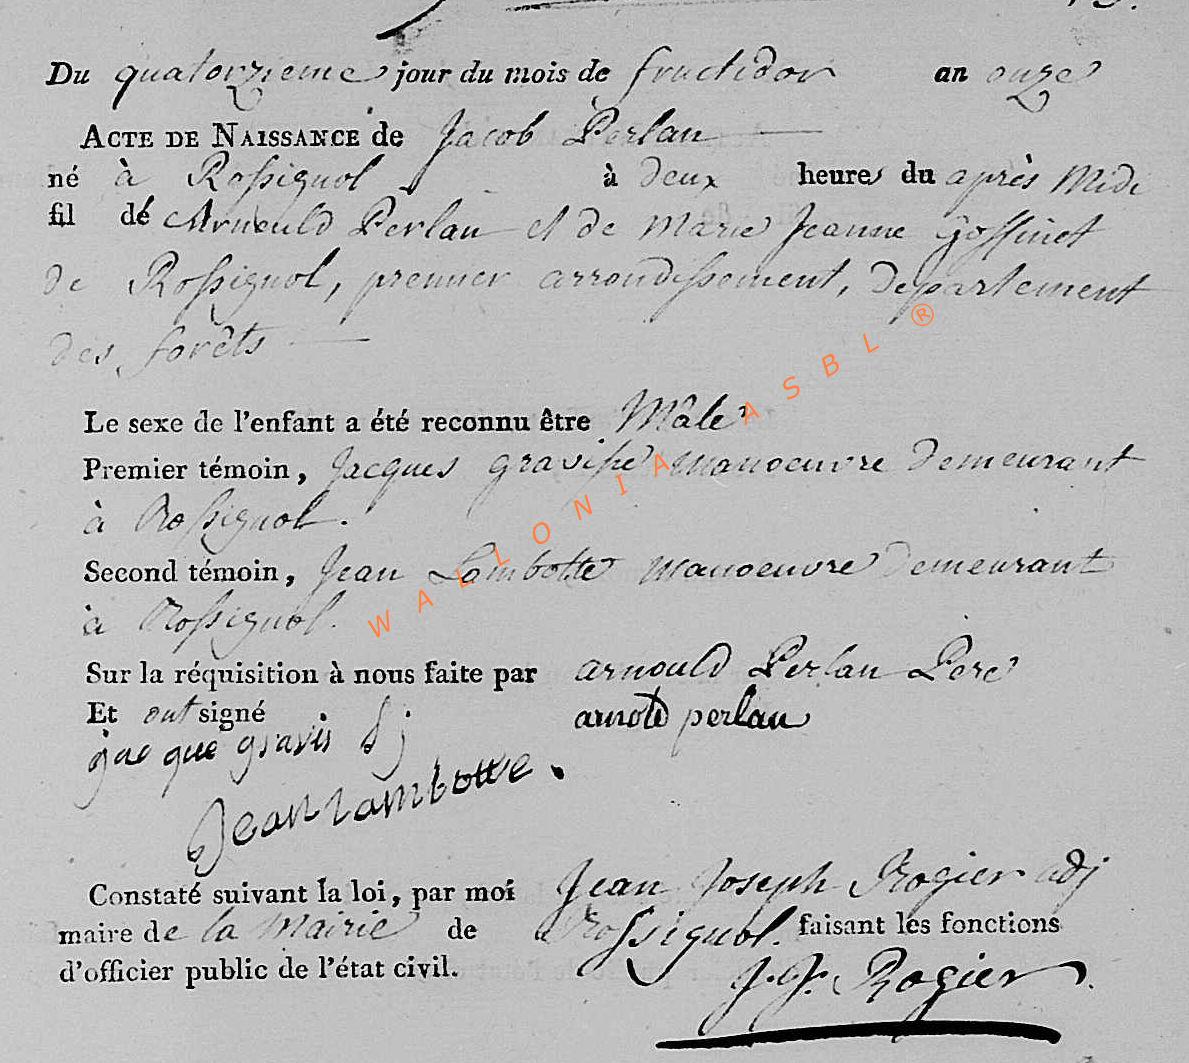 Du quatorzieme jour du mois de fructidor an onze
ACTE DE NAISSANCE de Jacob Perlau
né à Rossignol à deux heures du après Midi
fil dé Arnould Perlau et de Marie Jeanne Gossinet
de Rossignol, premier arrondissement, departement
des forêts
Le sexe de l'enfant a été reconnu être Mâle
Premier témoin, Jacques gravisse manoeuvre demeurant
à Rossignol.
Second témoin, Jean Lambotte manoeuvre demeurant
à Rossignol.
Sur la réquisition à nous faite par arnould Perlau Pere
Et ont signé arnold perlau
jacque gravis
Jean lambotte.
Constaté suivant la loi, par moi Jean Joseph Rogier adj
maire de la Mairie de Rossignol. faisant les fonctions
d'officier public de l'état civil.
J. J. Rogier
WALLONIA ASBL ®